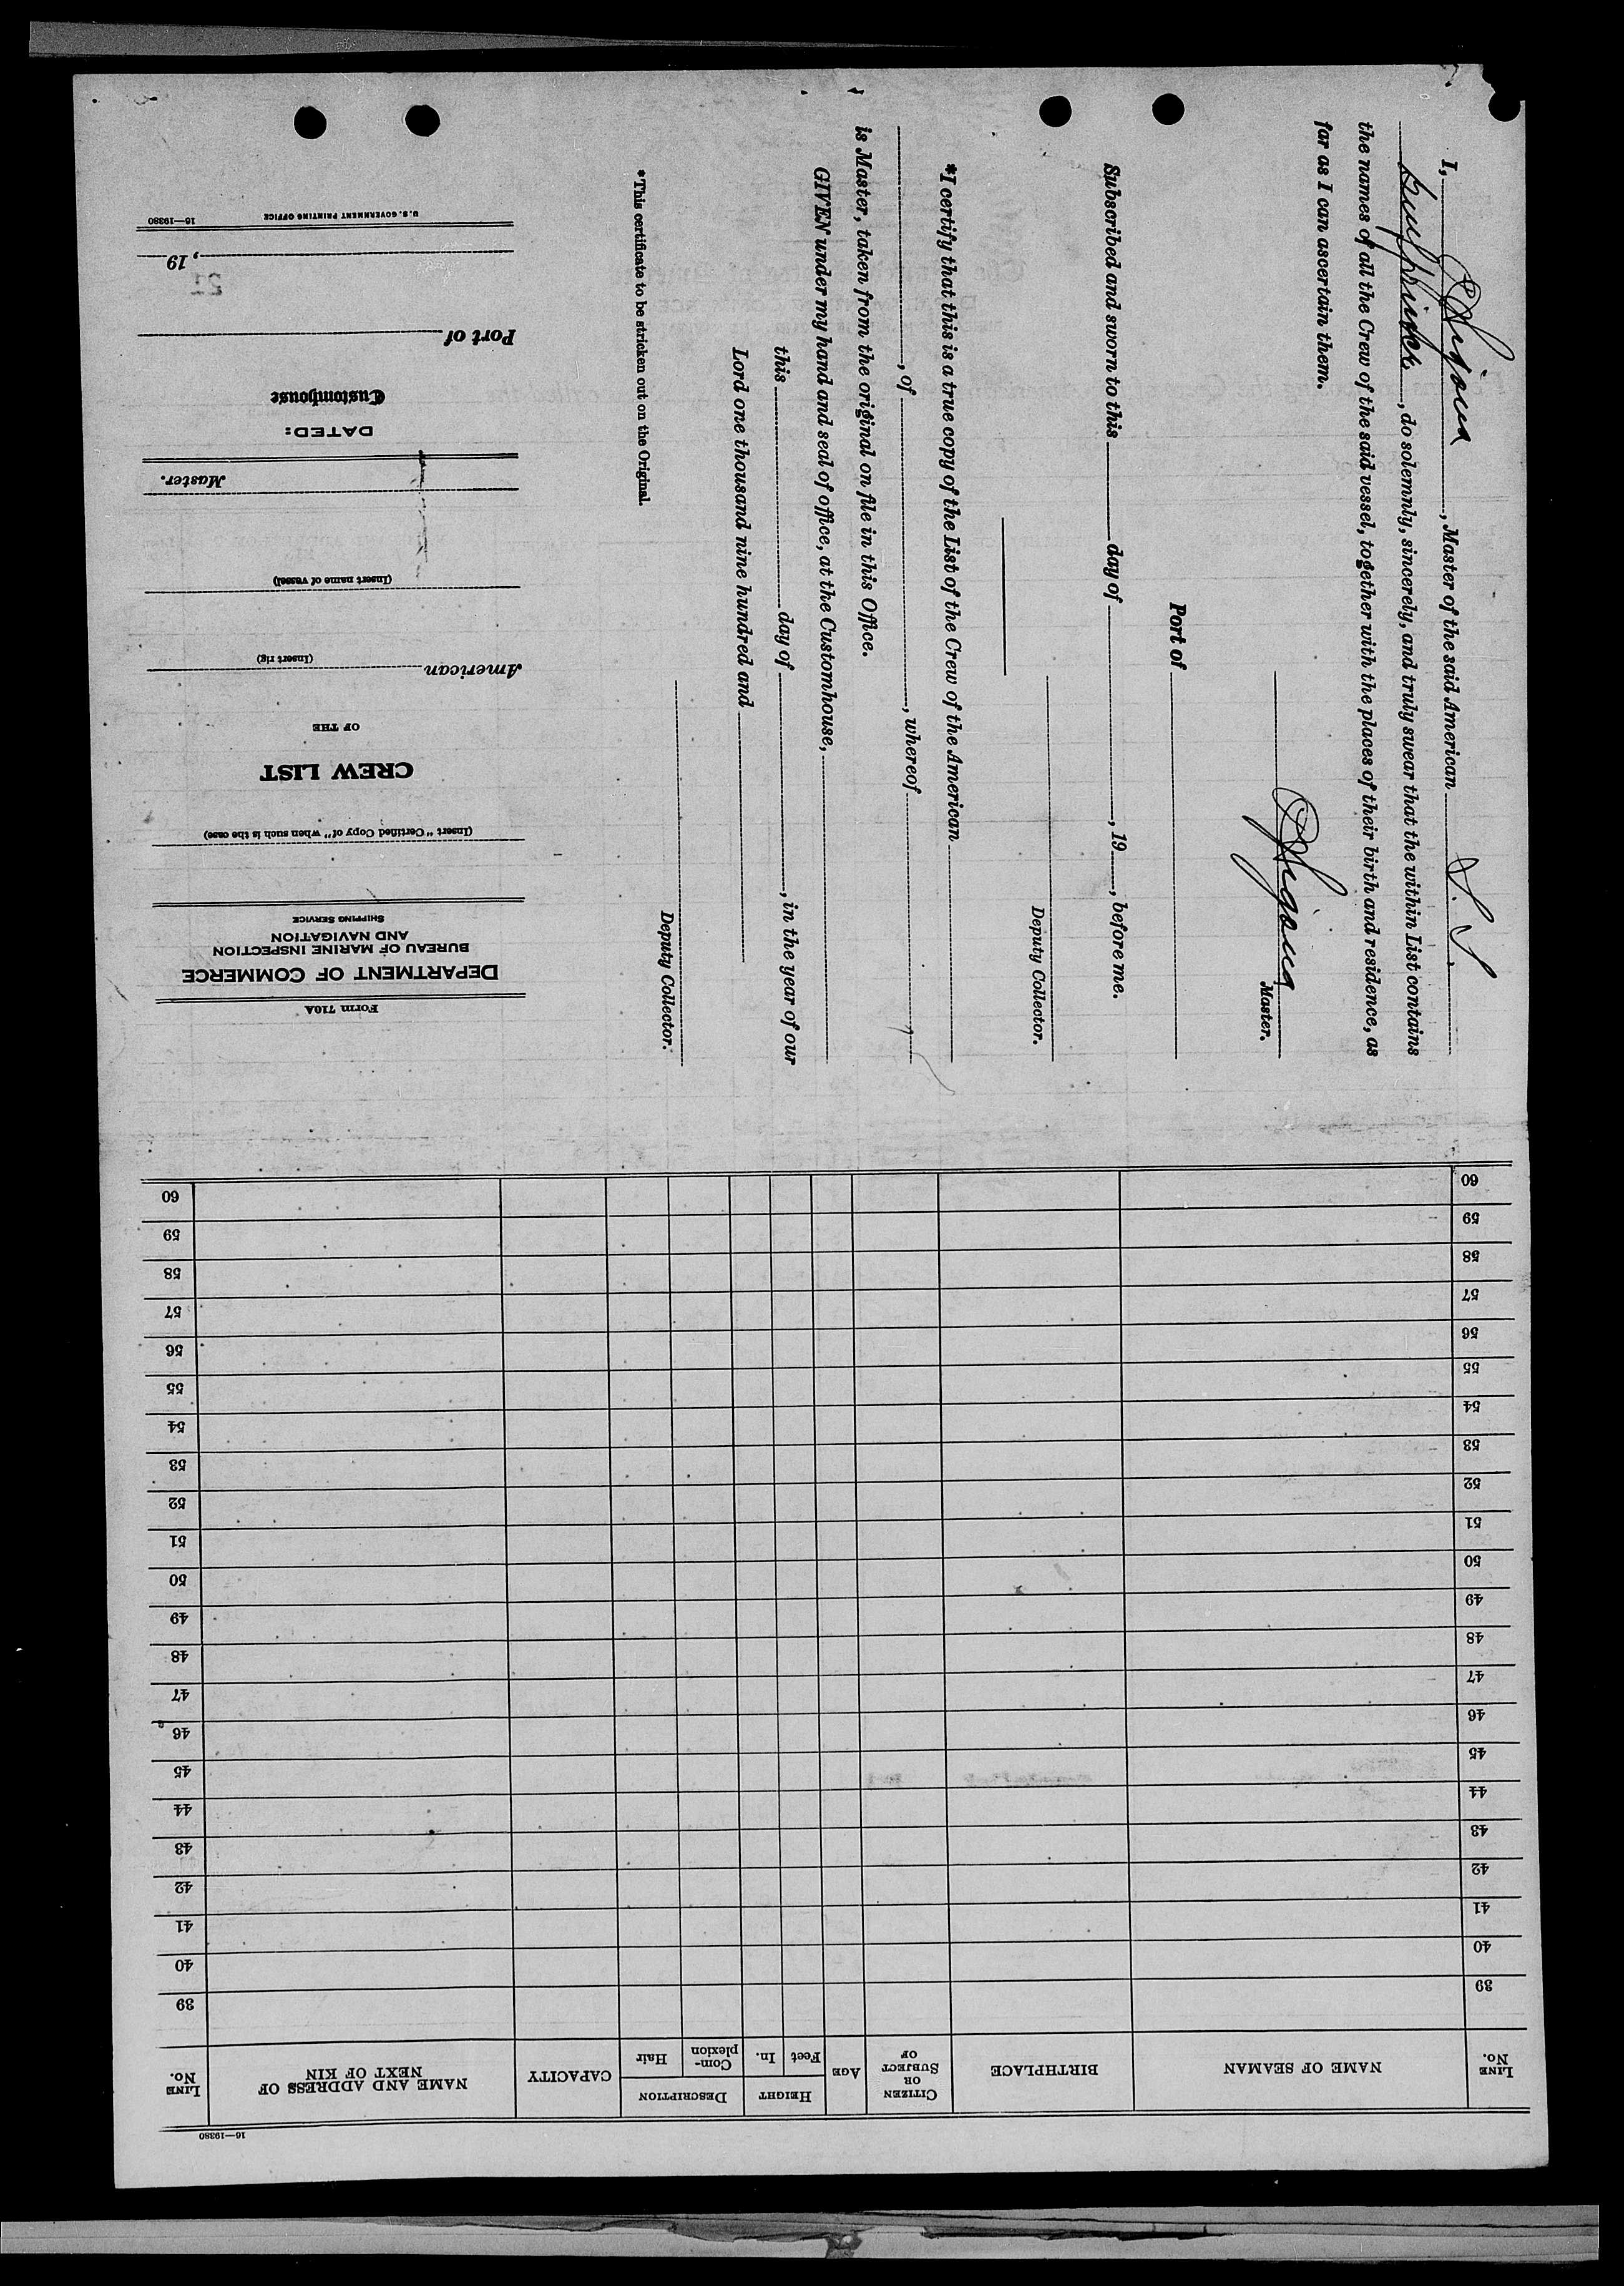 I, , Master of the said American S. S.
, do solemnly, sincerely, and truly swear that the within List contains
the names of all the Crew of the said vessel, together with the places of their birth and residence, as
far as I can ascertain them.
Master.
Port of
Subscribed and sworn to this day of , 19 , before me.
Deputy Collector.
*I certify that this is a true copy of the List of the Crew of the American
, of , whereof
is Master, taken from the original on file in this Office.
GIVEN under my hand and seal of office, at the Customhouse,
this day of , in the year of our
Lord one thousand nine hundred and
Deputy Collector.
*This certificate to be stricken out on the Original.
Form 710A
DEPARTMENT OF COMMERCE
BUREAU OF MARINE INSPECTION
AND NAVIGATION
SHIPPING SERVICE
(Insert "Certified Copy of" when such is the case)
CREW LIST
OF THE
American
(Insert rig)
(Insert name of vessel)
Master.
DATED:
Customhouse
Port of
, 19
21
U. S. GOVERNMENT PRINTING OFFICE 16—19380
16—19380
LINE No. NAME OF SEAMAN BIRTHPLACE CITIZEN OR SUBJECT OF AGE HEIGHT Feet In. DESCRIPTION Complexion Hair CAPACITY NAME AND ADDRESS OF NEXT OF KIN LINE No.
39 39
40 40
41 41
42 42
43 43
44 44
45 45
46 46
47 47
48 48
49 49
50 50
51 51
52 52
53 53
54 54
55 55
56 56
57 57
58 58
59 59
60 60